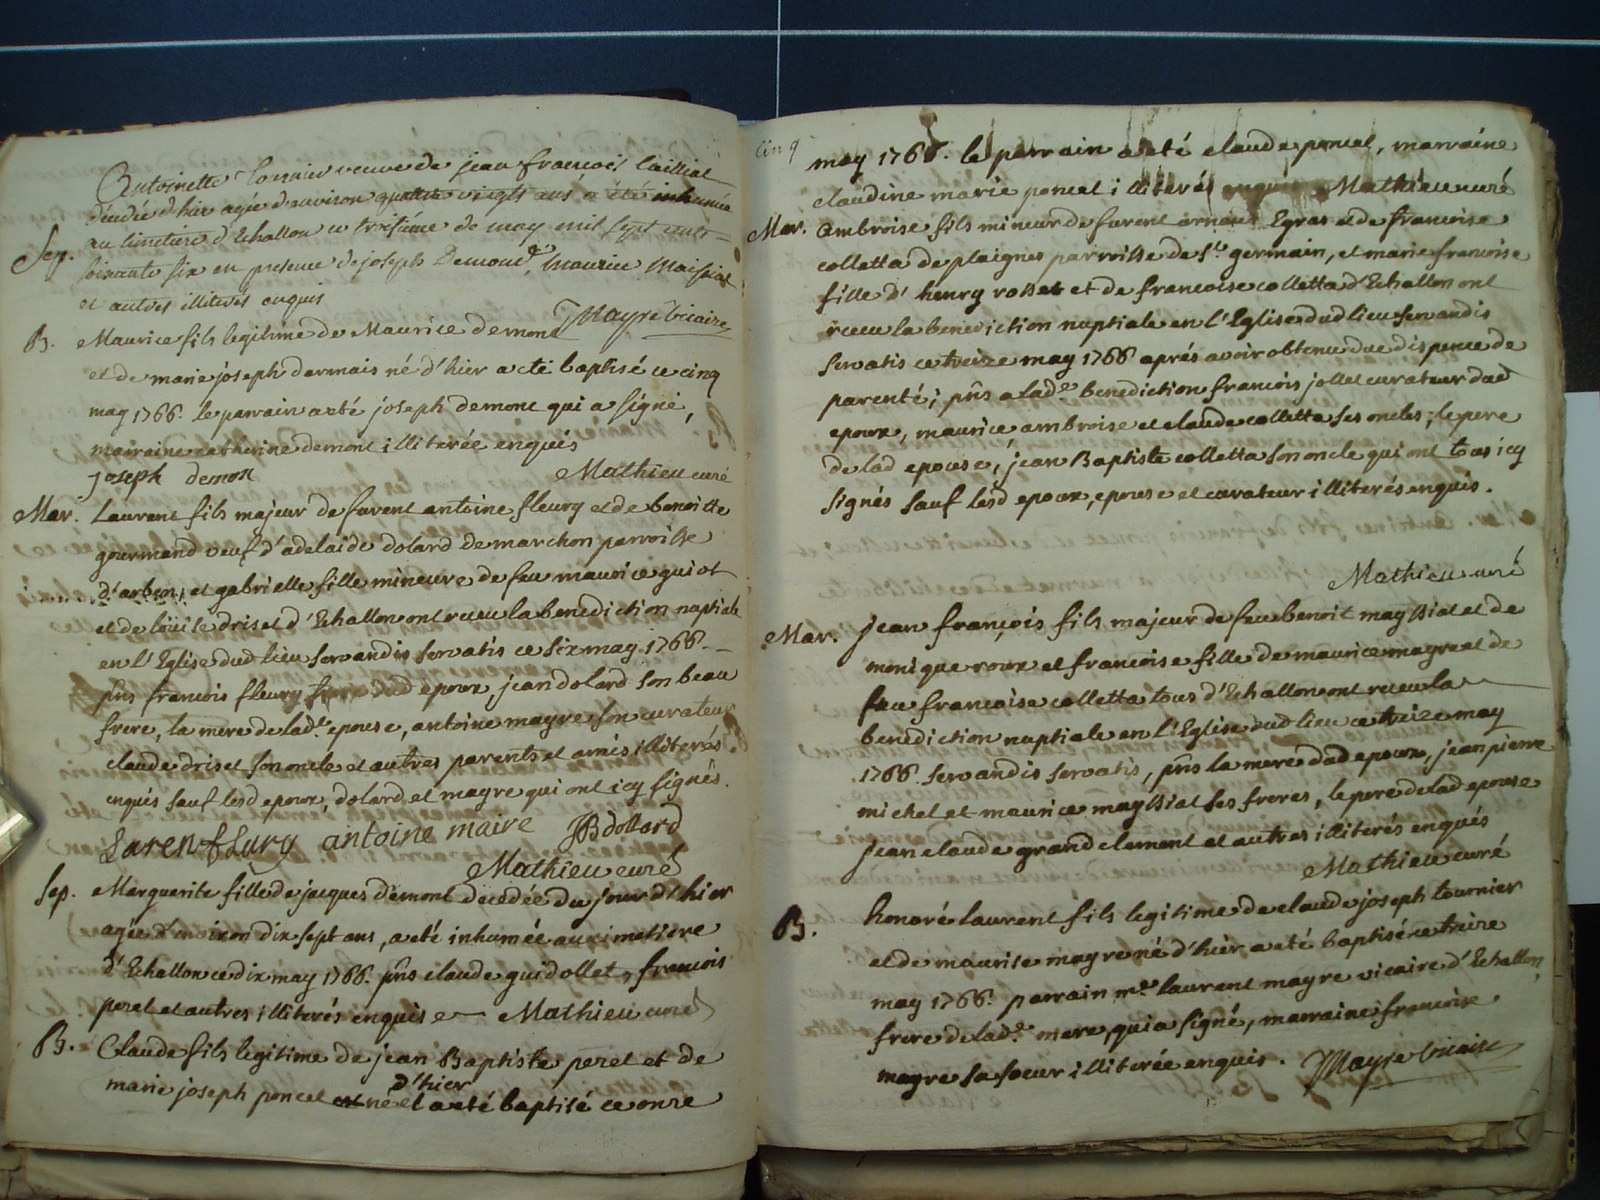 Antoinette veuve de jean françois
décédée d'hier agée d'environ quattre vingts ans a été inhumée
Sep. au cimetiere d'Echallon ce troisieme de may mil sept cents
soixante six en presence de joseph Demond, Maurice Maissiat
et autres illiterés enquis
Mayre vicaire
B. Maurice fils legitime de Maurice demont
et de marie joseph darmais né d'hier a eté baptisé ce cinq
may 1766. le parrain a eté joseph demont qui a signé,
marraine catherine demont illiterée enquis
joseph demon Mathieu curé
Mar. Laurent fils majeur de furent antoine fleury et de benoitte
gourmand veuf d'adelaide dolard de marchon parroisse
d'arbent, et gabrielle fille mineure de feu maurice guiot
et de louise driset d'Echallon ont receu la benediction nuptiale
en l'Eglise dud lieu servandis servatis ce six may 1766.
pñs francois fleury dud epoux, jean dolard son beau
frere, la mere de lad.te epouse, antoine mayre son curateur
claude driset son oncle et autres parents et amis illiterés
enquis sauf lesd epoux, dolard et mayre qui ont icy signés.
Laren fLury antoine maire JB dollard
Mathieu curé
Sep. Marguerite fille de jacques demont decedée du jour d'hier
agée d'environ dix sept ans, a eté inhumée au cimetiere
d'Echallon ce dix may 1766. pñs claude guidollet, francois
peret et autres illiterés enquis Mathieu curé
B. Claude fils legitime de jean Baptiste peret et de
d'hier
marie joseph poncet né et a eté baptisé ce onze
cinq
may 1766. le parrain a eté claude poncet, marraine
claudine marie poncet illiterés enquis Mathieu curé
Mar. Ambroise fils mineur de furent arnaud Egraz et de francoise
colletta de plaignes parroisse de S.t germain, et marie francoise
fille d'henry rosset et de francoise colletta d'Echallon ont
receu la benediction nuptiale en l'Eglise dud lieu servandis
servatis ce treize may 1766 aprés avoir obtenu due dispence de
parenté; pñs a lad.e benediction francois jollet curateur dud
epoux, maurice ambroise et claude colletta ses oncles; le pere
de lad epouse, jean Baptiste colletta son oncle qui ont tous icy
signés sauf lesd epoux, epouse et curateur illiterés enquis.
Mathieu curé
Mar. jean françois fils majeur de feu benoit mayssiat et de
monique roux et francoise fille de maurice mayre et de
feu francoise colletta tous d'Echallon ont receu la
benediction nuptiale en l'Eglise dud lieu ce treize may
1766. servandis servatis, pñs la mere dud epoux, jean pierre
michel et maurice mayssiat ses freres, le pere de lad epouse
jean claude grand clement et autres illiterés enquis
Mathieu curé
B. honoré laurent fils legitime de claude joseph tournier
et de maurise mayre né d'hier a eté baptisé ce treize
may 1766. parrain m.re laurent mayre vicaire d'Echallon,
frere de lad.e mere, qui a signé, marraine francoise
mayre sa soeur illiterée enquis. Mayre vicaire